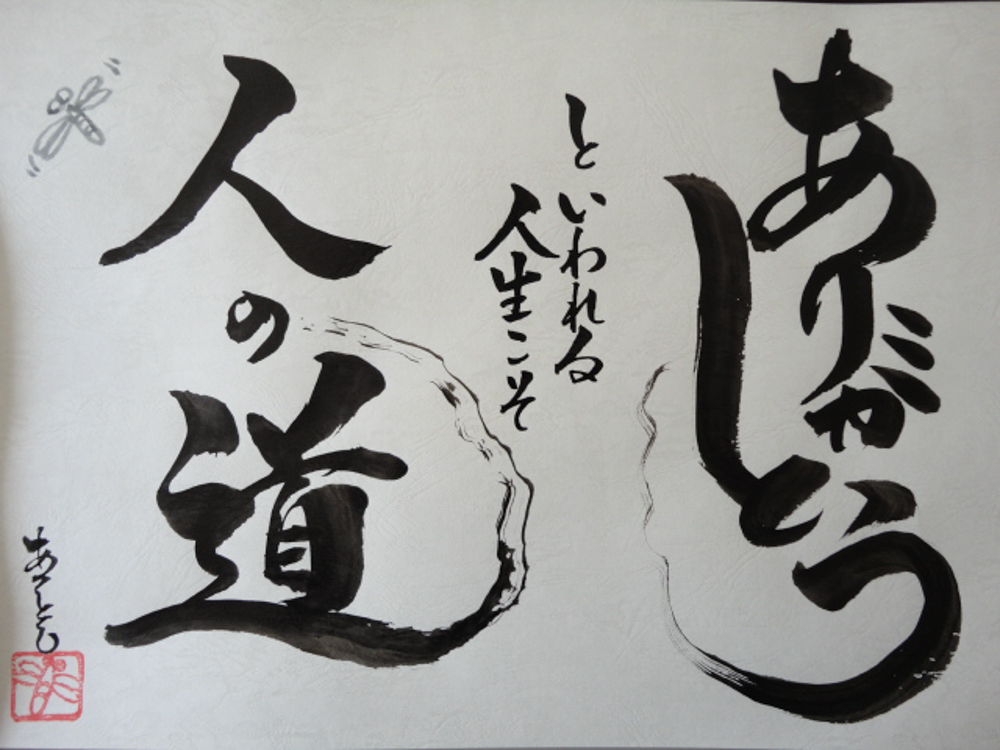 ありがとう
といわれる
人生こそ
人の道